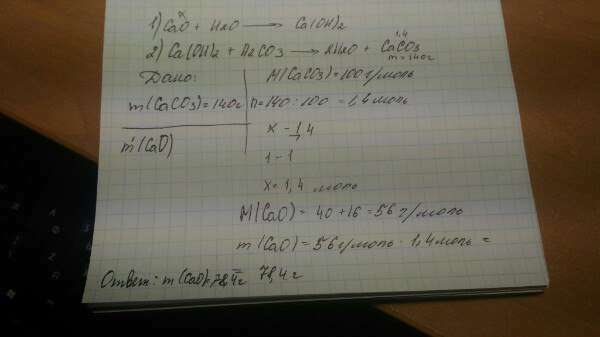 x
1) CaO + H2O → Ca(OH)2
1,4
2) Ca(OH)2 + H2CO3 → 2H2O + CaCO3
m=140г
Дано:
M(CaCO3)=100г/моль
m(CaCO3)=140г
n=140:100 = 1,4моль
m(CaO)
x - 1,4
1 - 1
x=1,4 моль
M(CaO) = 40+16=56 г/моль
m(CaO)=56г/моль · 1,4моль =
78,4г
Ответ: m(CaO)=78,4г